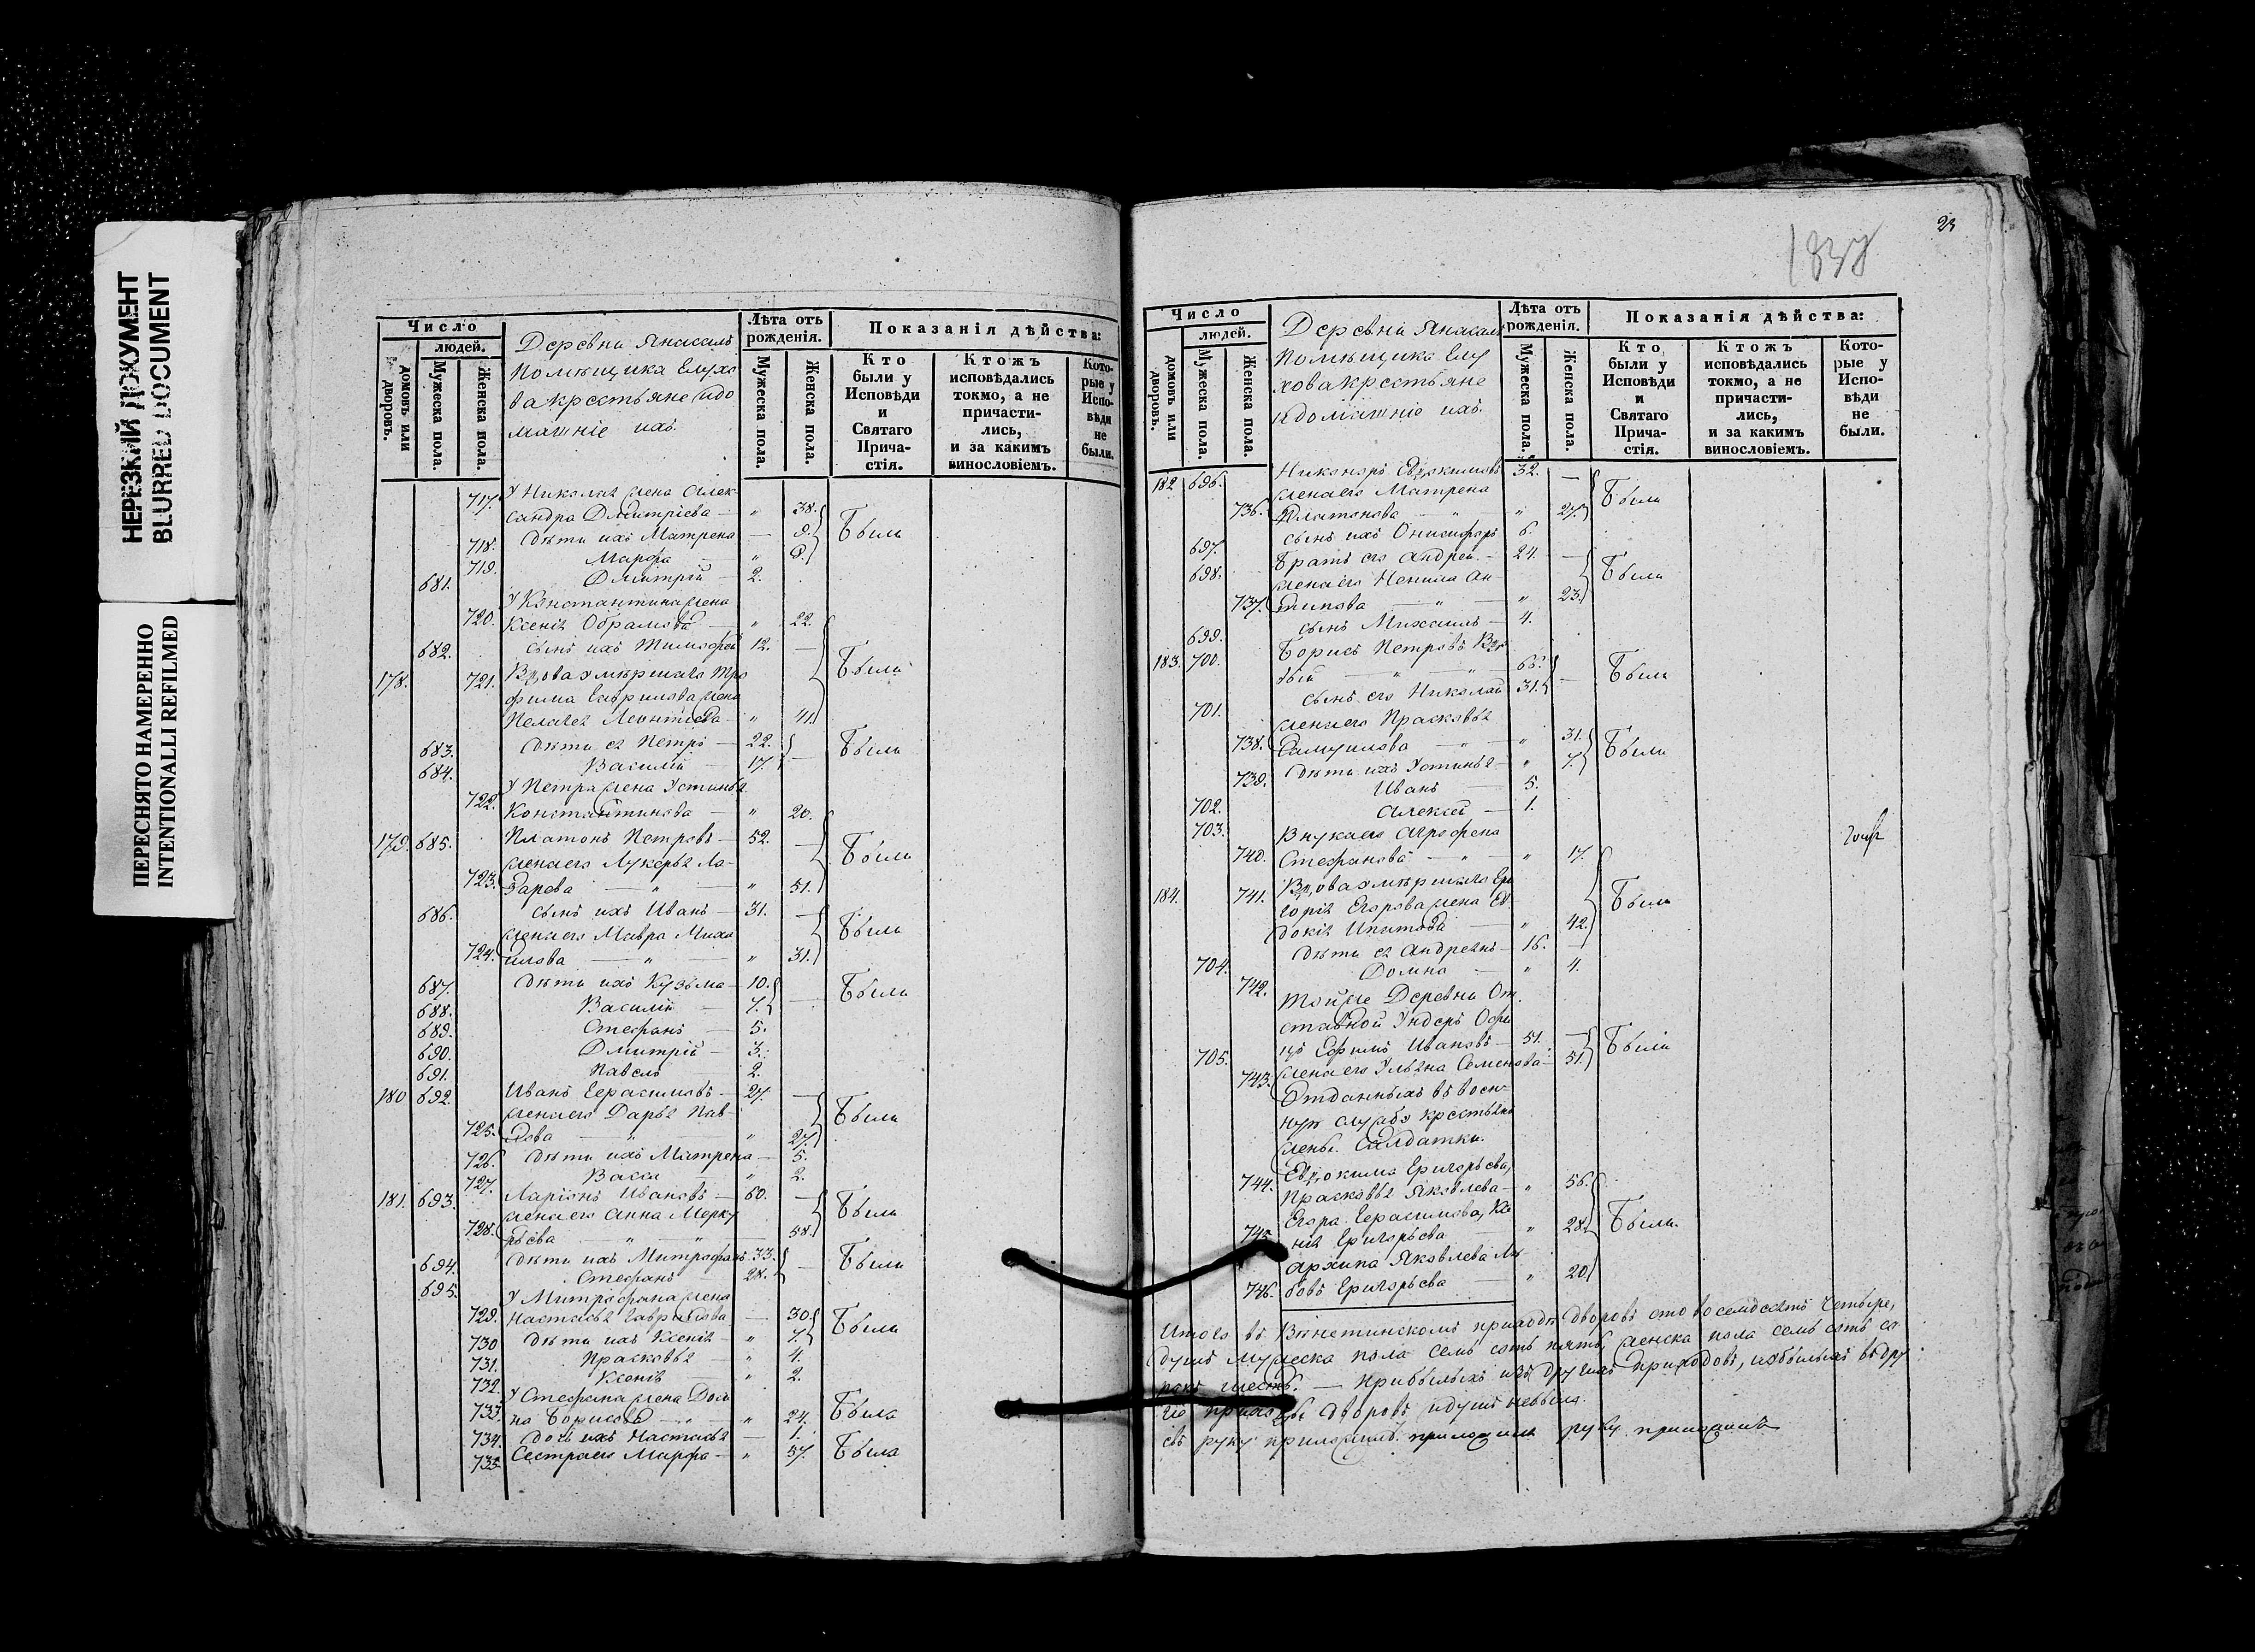 НЕРЕЗКИЙ ДОКУМЕНТ
BLURRED DOCUMENT
ПЕРЕСНЯТО НАМЕРЕННО
INTENTIONALLI REFILMED
Число
домовъ или дворовъ.
людей.
Мужеска пола.
Женска пола.
Деревни
Помѣщика Елухо
ва крестьяне и до
машніе ихъ.
Лѣта отъ рожденія.
Мужеска пола.
Женска пола.
Показанія дѣйства:
Кто были у Исповѣди и Святаго Прича-стія.
Ктожъ исповѣдались токмо, а не причасти-лись, и за какимъ винословіемъ.
Кото-рые у Испо-вѣди не были.
717. У Николая жена Алек-
сандра Дмитріева — " 38. Были
718. Дѣти ихъ Матрена — 9.
719. Марфа "
681. Дмитрій — 2.
У Константина жена
720. Ксенія Абрамова — " 22.
682. сынъ ихъ Тимофей 12. — Были
178. 721. Вдова умѣршаго Тро
фима Гаврилова жена
Пелагея Леонтіева — " 41.
683. Дѣти ея Петръ — 22. Были
684. Василій — 17.
У Петра жена Устинья
722. Константинова — " 20.
179. 685. Платонъ Петровъ — 52. — Были
жена его Лукерья Ла-
723. зарева — " — " 51.
686. сынъ ихъ Иванъ — 31. — Были
жена его Мавра Миха
724. илова — " — " 31.
687. Дѣти ихъ Кузьма — 10. — Были
688. Василій — 7.
689. Стефанъ — 5.
690. Дмитрій — 3.
691. Павелъ — 2.
180 692. Иванъ Герасимовъ — 27. — Были
жена его Дарья Пав-
725. лова — " — " 27.
726. Дѣти ихъ Матрена — 5.
727. Васса " 2.
181. 693. Ларіонъ Ивановъ — 60. — Были
жена его Анна Мерку
728. рьева — " — " 58.
694. Дѣти ихъ Митрофанъ 33. — Были
695. Стефанъ — 28.
У Митрофана жена
729. Настасья Гаврилова — 30. Были
730 Дѣти ихъ Ксенія — " 7.
731. Прасковья — " 4.
732. Ксенія " 2.
У Стефана жена Дом
733. на Борисова — " — " 24. Была
734. Дочь ихъ Настасья — 1.
735. Сестра его Марфа — " 37. Была
23
Число
домовъ или дворовъ.
людей.
Мужеска пола.
Женска пола.
Деревни
Помѣщика Елу
хова крестьяне
и домашніе ихъ.
Лѣта отъ рожденія.
Мужеска пола.
Женска пола.
Показанія дѣйства:
Кто были у Исповѣди и Святаго Прича-стія.
Ктожъ исповѣдались токмо, а не причасти-лись, и за какимъ винословіемъ.
Кото-рые у Испо-вѣди не были.
182 696. Никаноръ Евдокимовъ 32. — Были
жена его Матрена
736. Платонова — " — " 27.
697. сынъ ихъ Онисифоръ 6.
698. Братъ его Андрей — 24. — Были
жена его Ненила Ан-
737. типова — " — " 23.
699. сынъ Михаилъ — 4.
183. 700. Борисъ Петровъ Вдо
вый — " — 66. — Были
701. сынъ его Николай 31.
жена его Прасковья
738. Самуилова — " — " 31. Были
739. Дѣти ихъ Устинья — " 7.
702. Иванъ — 5.
703. Алексей — 1.
Внука его Агрофена
740. Стефанова — " — " 17.
184. 741. Вдова умѣршаго Гри
горія Егорова жена Ев
докія Ипатова — " 42. Были
704. Дѣти ея Андреянъ — 16. —
742. Домна — " 4.
Тойже Деревни От
ставной Ундеръ Офи
705. церъ Ефимъ Ивановъ — 51. — Были
743. жена его Ульяна Семенова — 51.
Отданныхъ въ воен-
ную службу крестьянъ
жены. Салдатки.
Евдокима Григорьева,
744. Прасковья Яковлева — " 56.
Егора Герасимова, Ксе
745. нія Григорьева — " 28. Были
Архипа Яковлева Лю
746. бовь Григорьева — " 20
Итого въ приходѣ дворовъ сто восемдесятъ четыре,
душъ мужеска пола семь сотъ пять, женска пола семь сотъ со
рокъ шесть. — Прибылыхъ изъ другихъ приходовъ, и убылыхъ въ дру
гіе приходы дворовъ и душъ небыло.
руку приложилъ